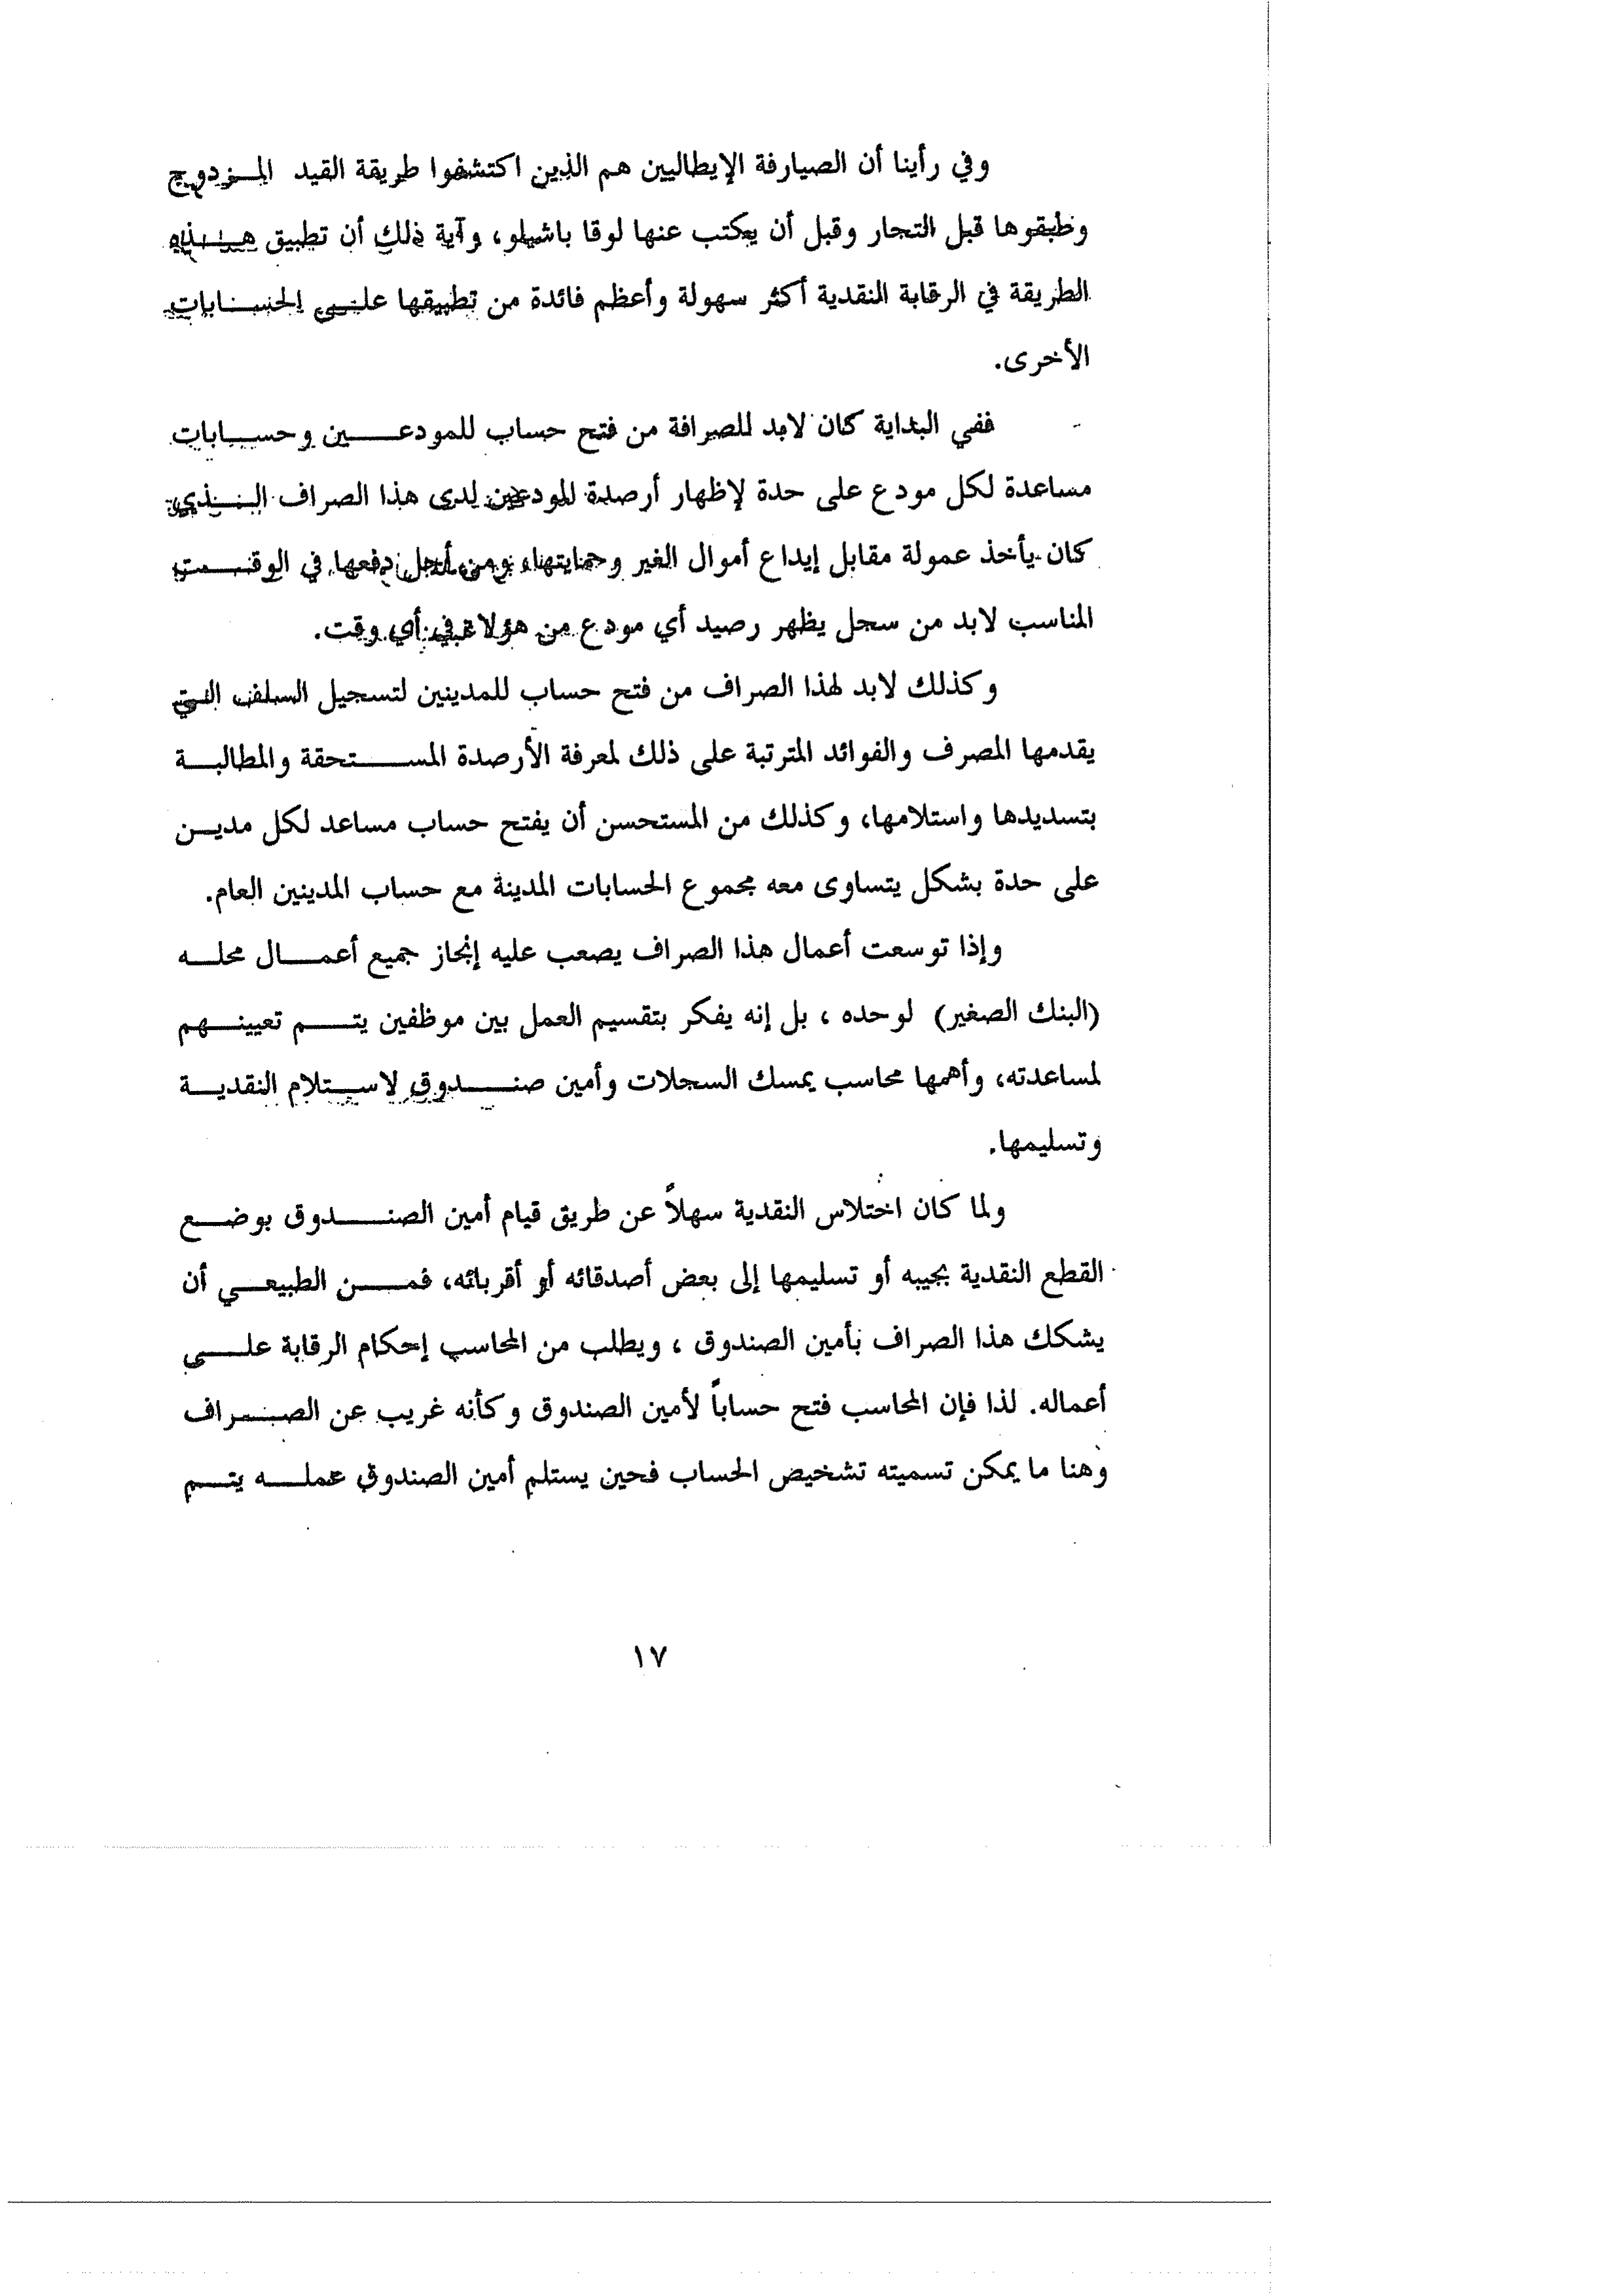 وفي رأينا أن الصيارفة الإيطاليين هم الذين اكتشفوا طريقة القيد المزدوج
وطبقوها قبل التجار وقبل أن يكتب عنها لوقا باشيلو، وآية ذلك أن تطبيق هذه
الطريقة في الرقابة النقدية أكثر سهولة وأعظم فائدة من تطبيقها على الحسابات
الأخرى.
ففي البداية كان لابد للصرافة من فتح حساب للمودعين وحسابات
مساعدة لكل مودع على حدة لإظهار أرصدة المودعين لدى هذا الصراف الذي
كان يأخذ عمولة مقابل إيداع أموال الغير وحمايتها، ومن أجل دفعها في الوقت
المناسب لابد من سجل يظهر رصيد أي مودع من هؤلاء في أي وقت.
وكذلك لابد لهذا الصراف من فتح حساب للمدينين لتسجيل السلف التي
يقدمها المصرف والفوائد المترتبة على ذلك لمعرفة الأرصدة المستحقة والمطالبة
بتسديدها واستلامها، وكذلك من المستحسن أن يفتح حساب مساعد لكل مدين
على حدة بشكل يتساوى معه مجموع الحسابات المدينة مع حساب المدينين العام.
وإذا توسعت أعمال هذا الصراف يصعب عليه إنجاز جميع أعمال محله
(البنك الصغير) لوحده ، بل إنه يفكر بتقسيم العمل بين موظفين يتم تعيينهم
لمساعدته، وأهمها محاسب يمسك السجلات وأمين صندوق لاستلام النقدية
وتسليمها.
ولما كان اختلاس النقدية سهلاً عن طريق قيام أمين الصندوق بوضع
القطع النقدية بجيبه أو تسليمها إلى بعض أصدقائه أو أقربائه، فمن الطبيعي أن
يشكك هذا الصراف بأمين الصندوق ، ويطلب من المحاسب إحكام الرقابة على
أعماله. لذا فإن المحاسب فتح حساباً لأمين الصندوق وكأنه غريب عن الصراف
وهنا ما يمكن تسميته تشخيص الحساب فحين يستلم أمين الصندوق عمله يتم
١٧